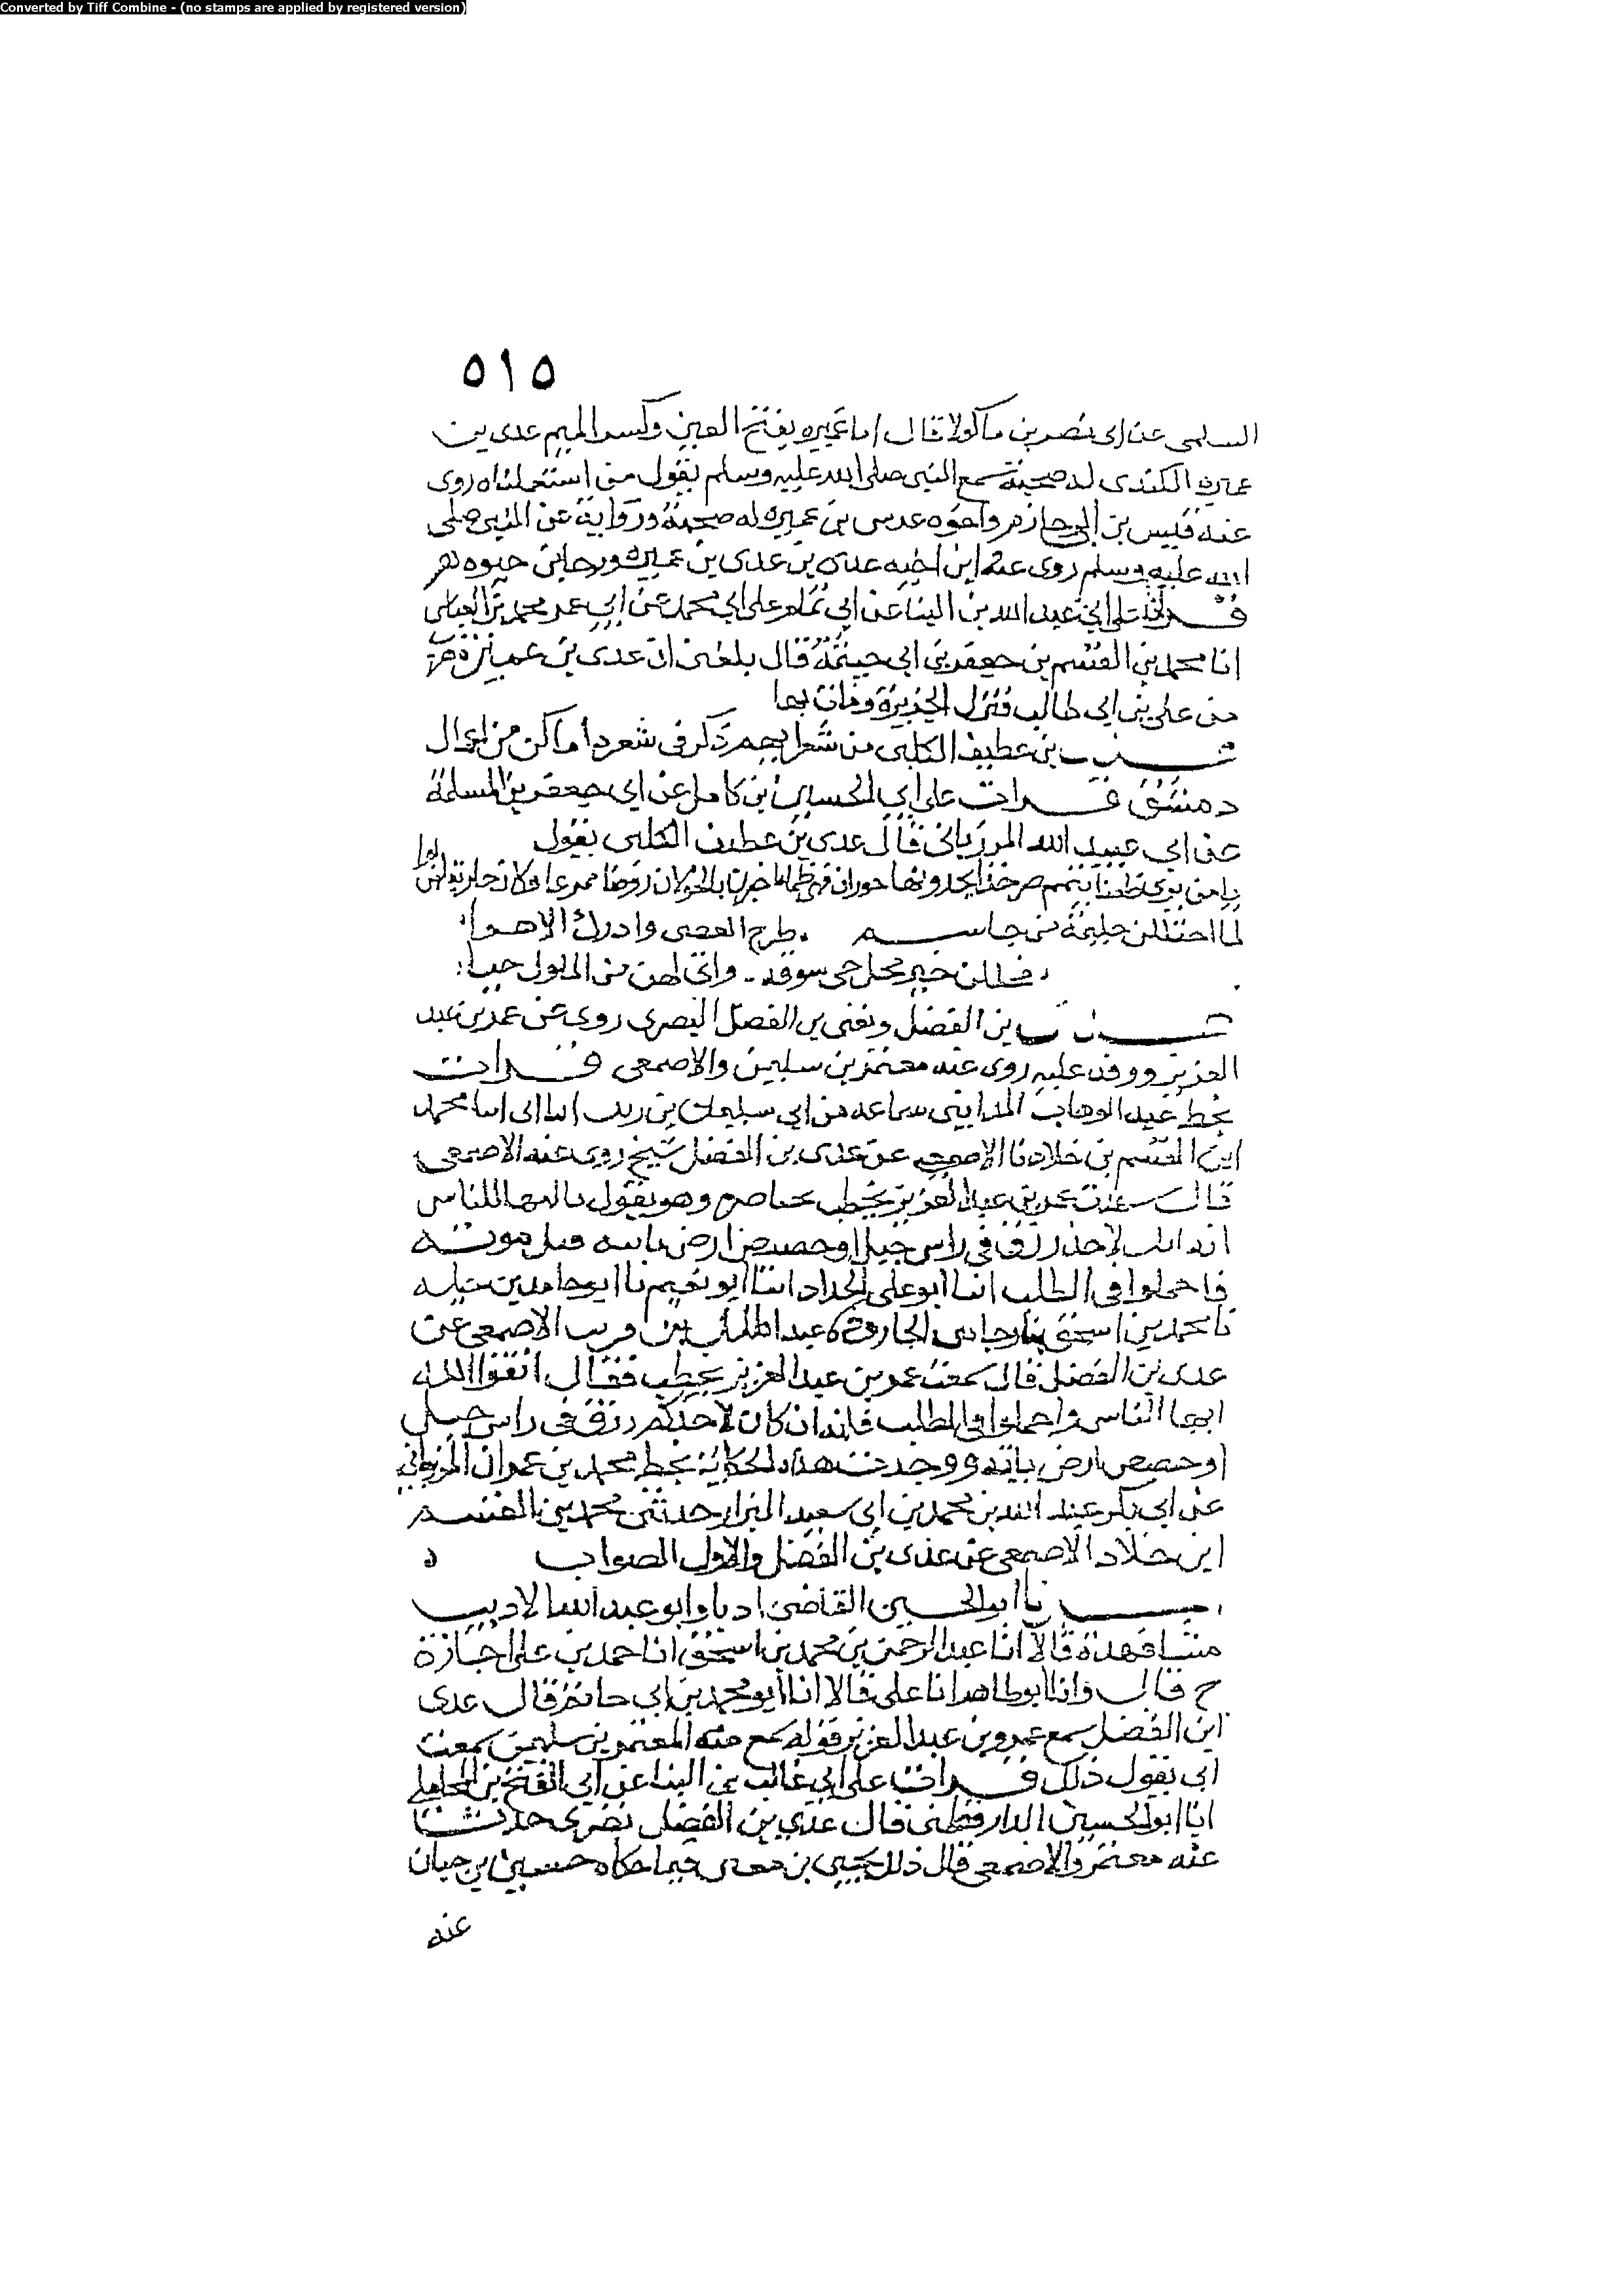 Converted by Tiff Combine - (no stamps are applied by registered version)
٥١٥
السلمى عن ابى نصر بن ماكولا قال اما عميره بفتح العين وكسر الميم عدى بن
عميرة الكندى له صحبة سمع النبى صلى الله عليه وسلم يقول من استعملناه روى
عنه قيس بن ابى حازم واخوه عدس بن عميره له صحبة ورواية عن النبى صلى
الله عليه وسلم روى عنه ابن اخيه عدى بن عدى بن عميرة ورجا بن حيوه
قرات على ابى عبد الله بن البنا عن ابى تمام على ابى محمد عن ابى عمر محمد بن العباس
انا محمد بن القسم بن جعفر بن ابى خيثمة قال بلغنى ان عدى بن عميرة هرب
من على بن ابى طالب فنزل الجزيرة ومات بها
بن غطيف الكلبى من شعرا ذكر فى شعره اماكن من اعمال
دمشق قرات على ابى الحسين بن كامل عن ابى جعفر بن المسلمة
عن ابى عبيد الله المرزبانى قال عدى بن غطيف الكلبى يقول
يا من
لما احتللن حليمة من جاسم طرح العصى وادرك الاهوا
فظللن خير محل حى سوقة واتى لهن من الملوك حبا
بن الفضل ويعنى بن الفضل البصرى روى عن عمر بن عبد
العزيز ووفد عليه روى عنه معتمر بن سليمن والاصمعى قرات
بخط عبد الوهاب الميدانى سماعه من ابى سليمان بن زبر انا ابى انا محمد
ابن القسم بن خلاد نا الاصمعى عن عدى بن الفضل شيخ روى عنه الاصمعى
قال سمعت عمر بن عبد العزيز يخطب بخناصره وهو يقول يا ايها الناس
انه ان لاحد رزق فى راس جبل او حضيض ارض ياتيه قبل موته
فاجملوا فى الطلب انبا ابو على الحداد انبا ابو نعيم نا ابو حامد بن جبله
نا محمد بن اسحق نا رجا بن الجارود نا عبد الملك بن قريب الاصمعى عن
عدى بن الفضل قال سمعت عمر بن عبد العزيز يخطب فقال اتقوا الله
ايها الناس واجملوا فى الطلب فانه ان كان لاحدكم رزق فى راس جبل
او حضيض ارض ياته ووجدت هذه الحكاية بخط محمد بن عمران المرزبانى
عن ابى بكر عبد الله بن محمد بن ابى سعيد البزار حدثنى محمد بن القسم
ابن خلاد الاصمعى عن عدى بن الفضل والاول الصواب ه
نا ابو الحسين القاضى اذنا وابو عبد الله الاديب
مشافهة قالا انا عبد الرحمن بن محمد بن اسحق انا حمد بن على اجازة
ح قال وانا ابو طاهر انا على قالا انا ابو محمد بن ابى حاتم قال عدى
ابن الفضل سمع عمر بن عبد العزيز قوله سمع منه المعتمر بن سليمن سمعت
ابى يقول ذلك قرات على ابى غالب بن البنا عن ابى الفتح بن المحاملى
انا ابو الحسين الدارقطنى قال عدى بن الفضل بصرى حدثنا
عنه معتمر والاصمعى قال ذلك يحيى بن معين فيما حكاه حسين بن حبان
عنه